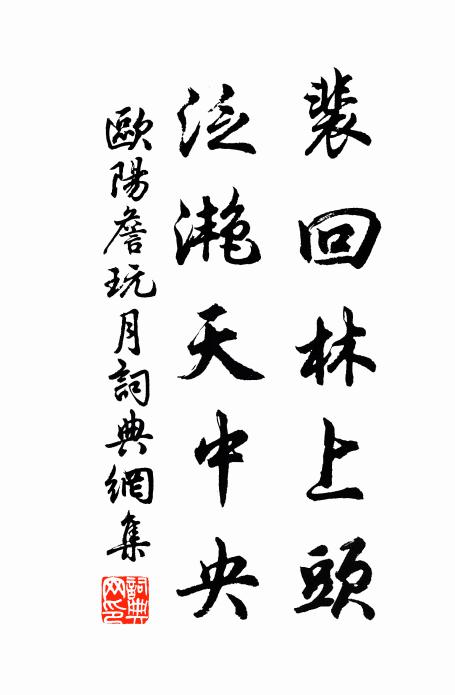 裴回林上頭
泛灧天中央
歐陽詹玩月詞典網集
詞典網印